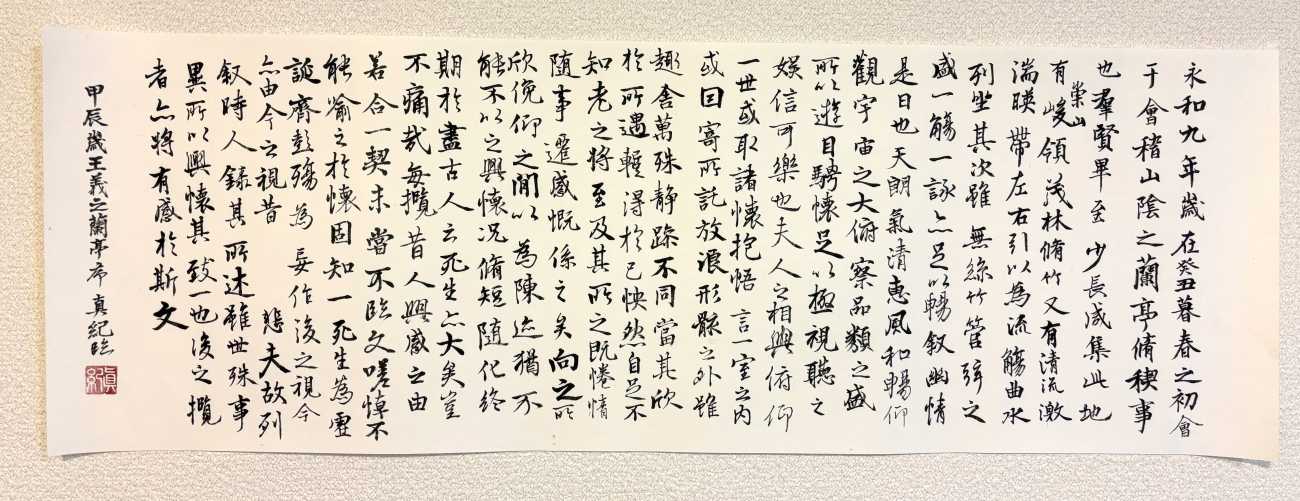 永和九年歲在癸丑暮春之初會
于會稽山陰之蘭亭脩稧事
也羣賢畢至少長咸集此地
有崇山峻領茂林脩竹又有清流激
湍暎帶左右引以為流觴曲水
列坐其次雖無絲竹管弦之
盛一觴一詠亦足以暢叙幽情
是日也天朗氣清惠風和暢仰
觀宇宙之大俯察品類之盛
所以遊目騁懷足以極視聽之
娛信可樂也夫人之相與俯仰
一世或取諸懷抱悟言一室之內
或因寄所託放浪形骸之外雖
趣舍萬殊静躁不同當其欣
於所遇輕得於己怏然自足不
知老之將至及其所之既惓情
随事遷感慨係之矣向之所
欣俛仰之閒以為陳迹猶不
能不以之興懷況脩短随化終
期於盡古人云死生亦大矣豈
不痛哉每攬昔人興感之由
若合一契未嘗不臨文嗟悼不
能喻之於懷固知一死生為虛
誕齊彭殤為妄作後之視今
亦由今之視昔悲夫故列
叙時人錄其所述雖世殊事
異所以興懷其致一也後之攬
者亦將有感於斯文
甲辰歲王羲之蘭亭序真紀臨
真紀